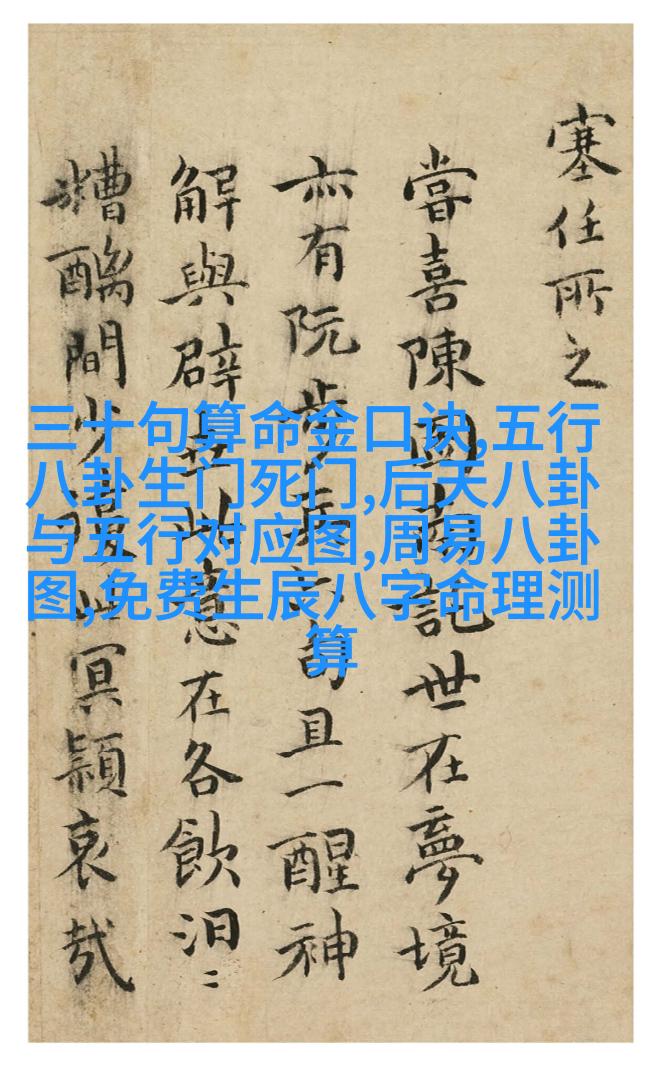 塞任所之
嘗喜陳國南世在夢境
亦有阮步兵且一醒神
解與辟此意在各飲汩〻
糟醨間少冥哀哉
三十句算命金口诀,五行
八卦生门死门,后天八卦
与五行对应图,周易八卦
图,免费生辰八字命理测
算